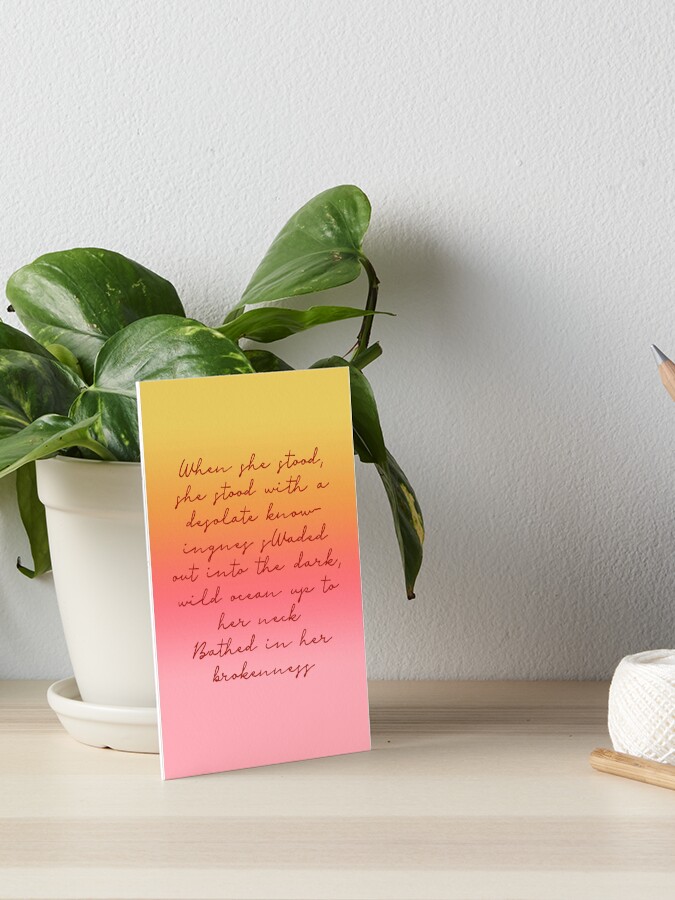 When she stood,
she stood with a
desolate know-
ingnes sWaded
out into the dark,
wild ocean up to
her neck
Bathed in her
brokenness